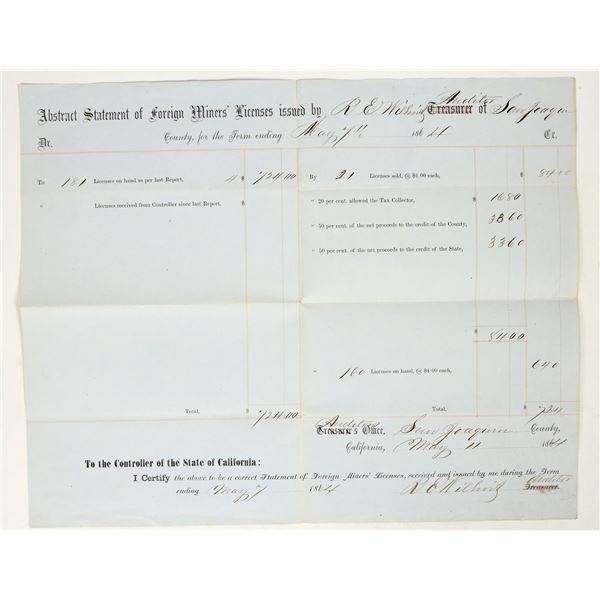 Auditor
Abstract Statement of Foreign Miners' Licenses issued by R E Wilhoit Treasurer of San Joaquin
Dr. County, for the Term ending May 7th 1864 Cr.
To 181 Licenses on hand as per last Report, 4 $ 724.00
" Licenses received from Controller since last Report,
By 21 Licenses sold, @ $4 00 each, $ 84 00
" 20 per cent. allowed the Tax Collector, $ 16 80
" 50 per cent. of the net proceeds to the credit of the County, 33 60
" 50 per cent. of the net proceeds to the credit of the State, 33 60
$ 84 00
" 160 Licenses on hand, @ $4 00 each, 640
Total, $ 724.00
Total, $ 724
Auditor
Treasurer's Office, San Joaquin County,
California, May 11 1864
To the Controller of the State of California:
I Certify the above to be a correct Statement of Foreign Miners' Licenses, received and issued by me during the Term
ending May 7 1864 R E Wilhoit Auditor
Treasurer.